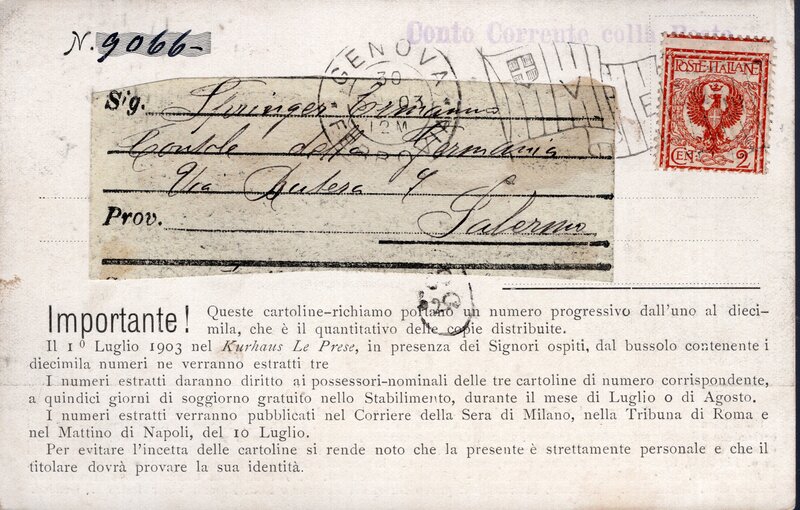 N. 9066-
Conto Corrente colla Posta
GENOVA
FERROVIA
30
03
12M
POSTE·ITALIANE
CEN 2
Sig. Springer Ermanno
Console della Germania
Via Butera 7
Prov. Palermo
Importante! Queste cartoline-richiamo portano un numero progressivo dall'uno al dieci-
mila, che è il quantitativo delle copie distribuite.
Il 1º Luglio 1903 nel Kurhaus Le Prese, in presenza dei Signori ospiti, dal bussolo contenente i
diecimila numeri ne verranno estratti tre
I numeri estratti daranno diritto ai possessori-nominali delle tre cartoline di numero corrispondente,
a quindici giorni di soggiorno gratuito nello Stabilimento, durante il mese di Luglio o di Agosto.
I numeri estratti verranno pubblicati nel Corriere della Sera di Milano, nella Tribuna di Roma e
nel Mattino di Napoli, del 10 Luglio.
Per evitare l'incetta delle cartoline si rende noto che la presente è strettamente personale e che il
titolare dovrà provare la sua identità.